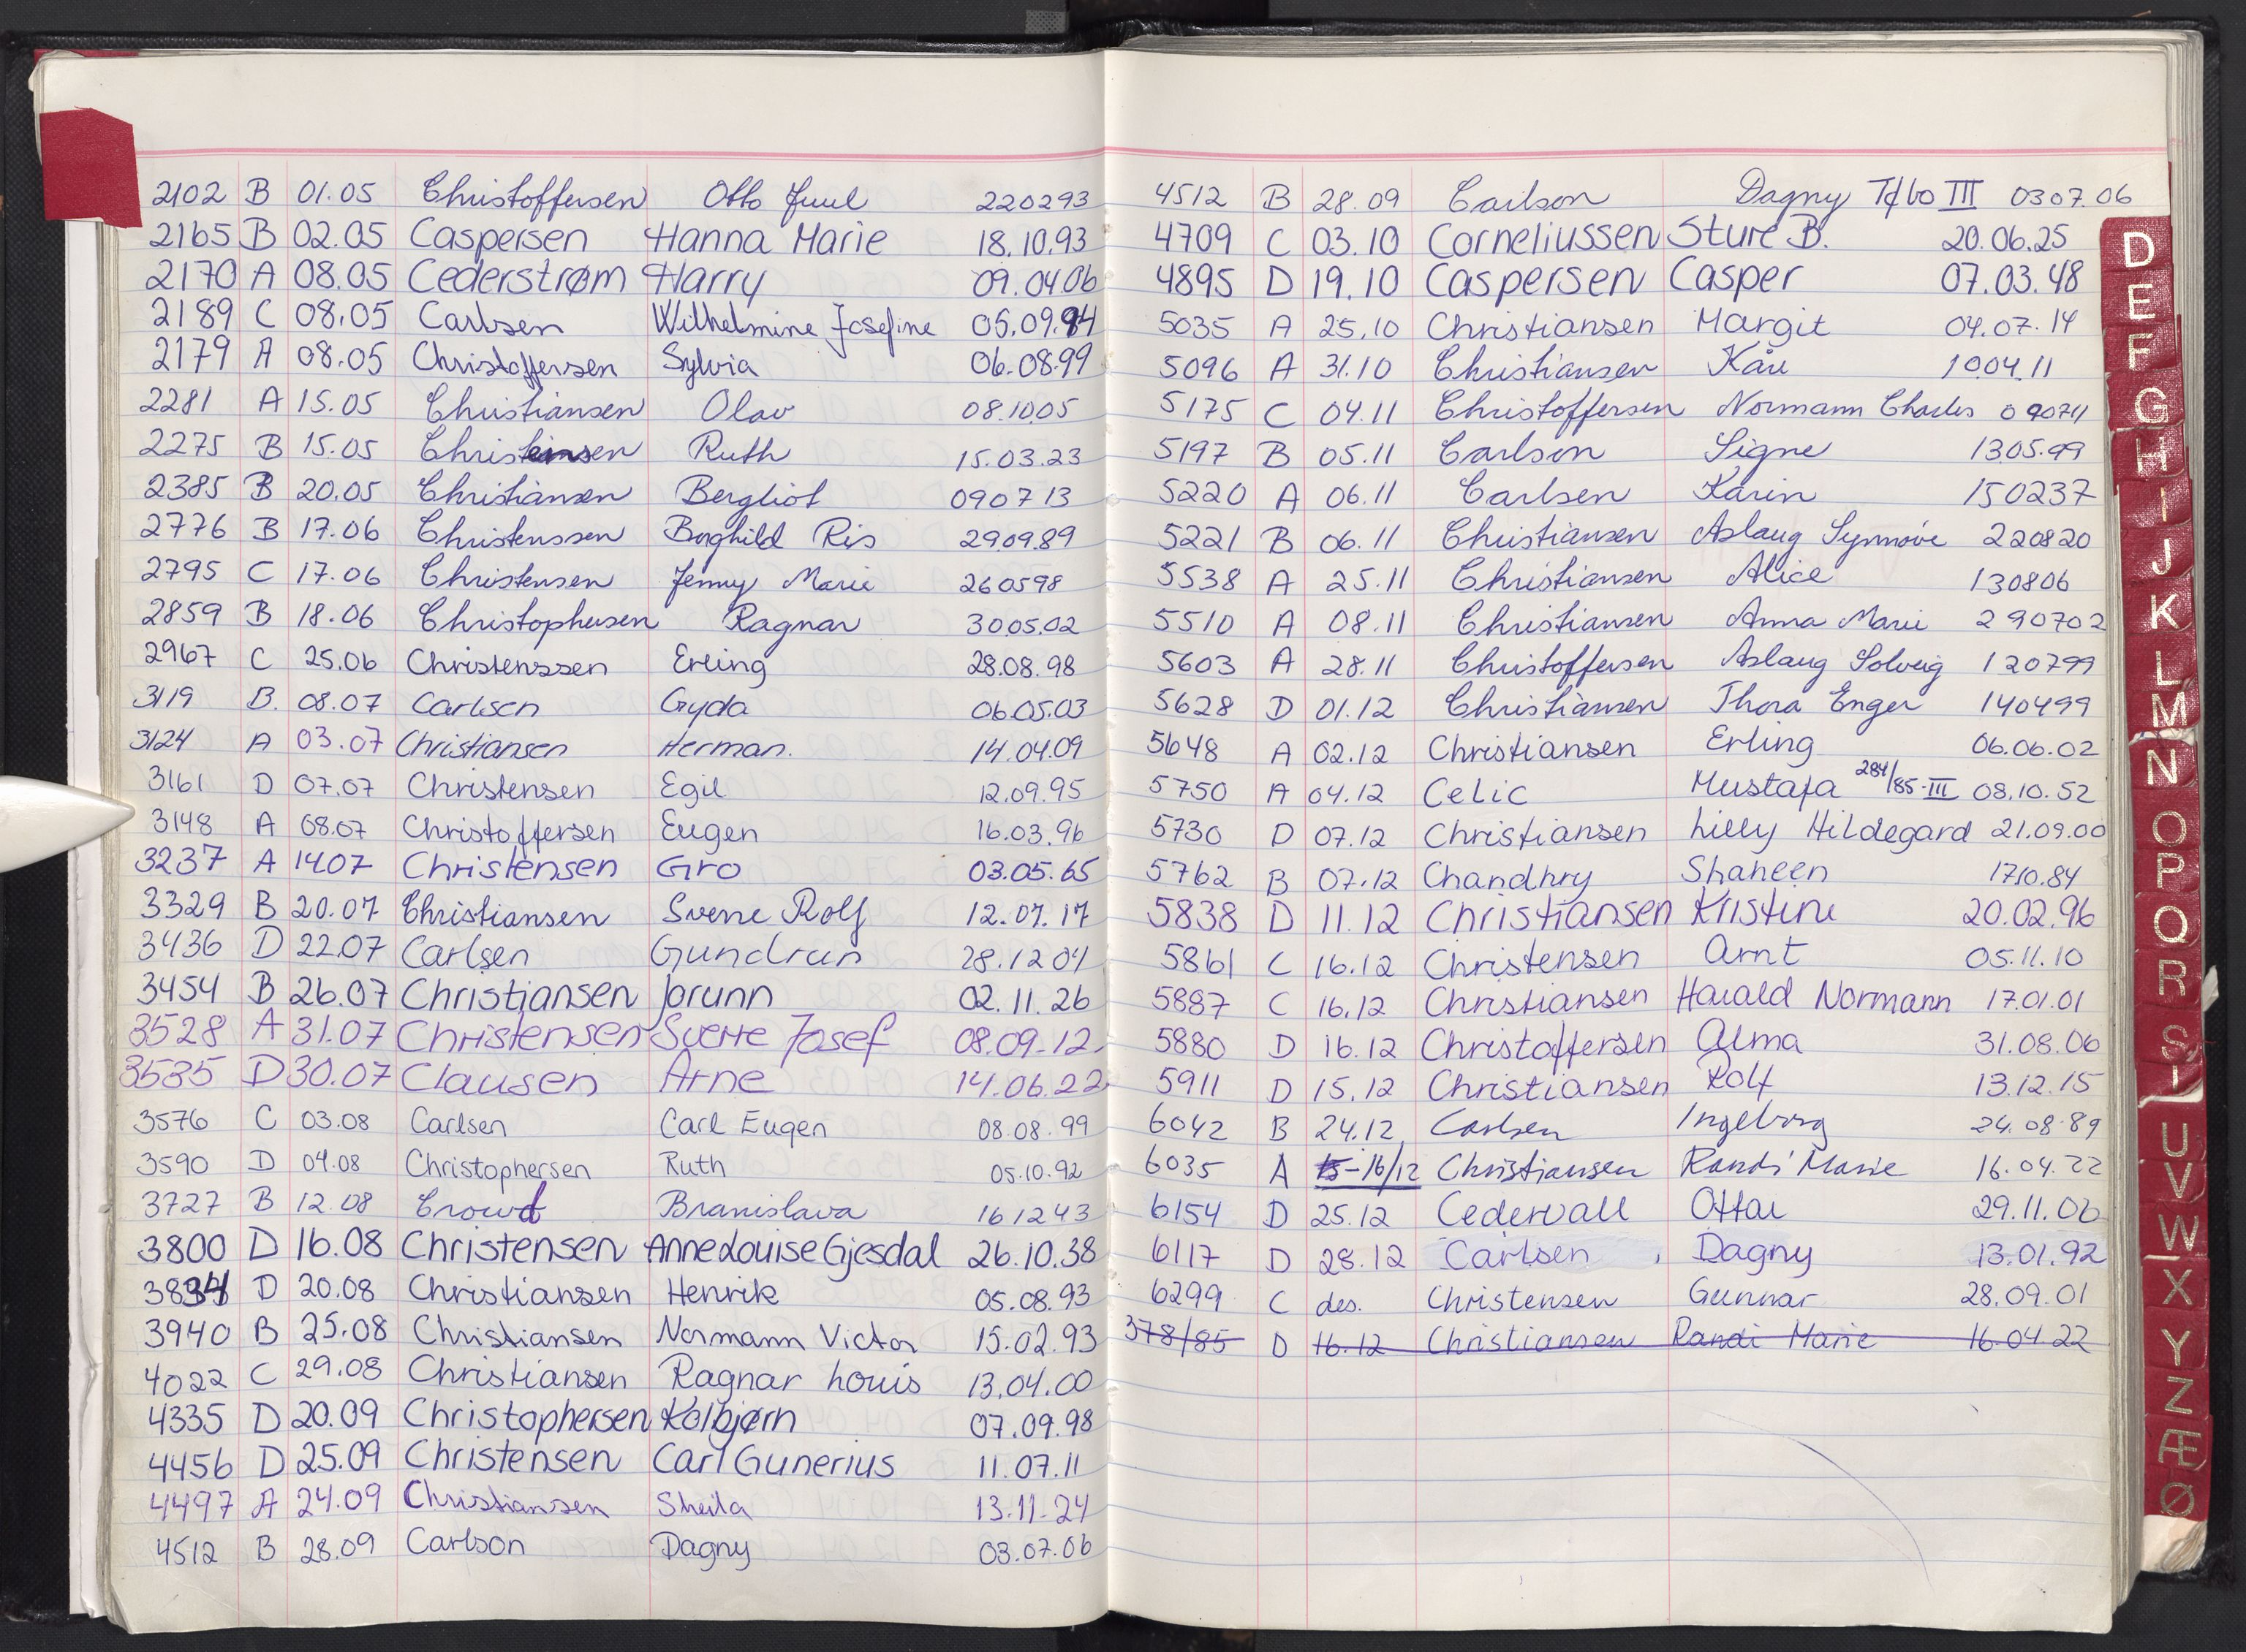 2102 B 01.05 Christoffersen Otto Juul 220293
2165 B 02.05 Caspersen Hanna Marie 18.10.93
2170 A 08.05 Cederstrøm Harry 09.04.06
2189 C 08.05 Carlsen Wilhelmine Josefine 05.09.94
2179 A 08.05 Christoffersen Sylvia 06.08.99
2281 A 15.05 Christiansen Olav 08.10.05
2275 B 15.05 Christensen Ruth 15.03.23
2385 B 20.05 Christiansen Bergliot 090713
2776 B 17.06 Christenssen Borghild Ris 290989
2795 C 17.06 Christensen Jenny Marie 260598
2859 B 18.06 Christophersen Ragnar 30.05.02
2967 C 25.06 Christenssen Erling 28.08.98
3119 B. 08.07 Carlsen Gyda 06.05.03
3124 A 03.07 Christiansen Herman. 14.04.09
3161 D 07.07 Christensen Egil 12.09.95
3148 A 08.07 Christoffersen Eugen 16.03.96
3237 A 1407 Christensen Gro 03.05.65
3329 B 20.07 Christiansen Sverre Rolf 12.07.17
3436 D 22.07 Carlsen Gundrun 28.12 04
3454 B 26.07 Christiansen Jorunn 02.11.26
3528 A 31.07 Christensen Sverre Josef 08.09-12
3535 D 30.07 Clausen Arne 14.06.22
3576 C 03.08 Carlsen Carl Eugen 08.08.99
3590 D 04.08 Christophersen Ruth 05.10.92
3727 B 12.08 Branislava 161243
3800 D 16.08 Christensen Anne Louise Gjesdal 26.10.38
3834 D 20.08 Christiansen Henrik 05.08.93
3940 B 25.08 Christiansen Normann Victor 15.02.93
4022 C 29.08 Christiansen Ragnar Louis 13.04.00
4335 D 20.09 Christophersen Kolbjørn 07.09.98
4456 D 25.09 Christensen Carl Gunerius 11.07.11
4497 A 24.09 Christiansen Sheila 13.11-24
4512 B 28.09 Carlson Dagny 03.07.06
4512 B 28.09 Carlson Dagny III 0307.06
4709 C 03.10 Corneliussen Sture B. 20.06.25
4895 D 19.10 Caspersen Casper 07.03.48
5035 A 25.10 Christiansen Margit 04.07.14
5096 A 31.10 Christiansen Kåre 1004.11
5175 C 04.11 Christoffersen Normann Charles
5197 B 05.11 Carlson Signe 1305.99
5220 A 06.11 Carlsen Karin 150237
5221 B 06.11 Christiansen Aslaug Synnøve 220820
5538 A 25.11 Christiansen Alice 130806
5510 A 08.11 Christiansen Anna Marie 290702
5603 A 28.11 Christoffersen Aslaug Solveig 120799
5628 D 01.12 Christiansen Thora Enger 140499
5648 A 02.12 Christiansen Erling 06.06.02
5750 A 04.12 Celic Mustafa 284/85-III 08.10.52
5730 D 07.12 Christiansen Lilly Hildegard 21.09.00
5762 B 07.12 Chandhry Shaheen 1710.84
5838 D 11.12 Christiansen Kristine 20.02.96
5861 C 16.12 Christensen Arnt 05.11.10
5887 C 16.12 Christiansen Harald Normann 17.01.01
5880 D 16.12 Christoffersen Alma 31.08.06
5911 D 15.12 Christiansen Rolf 13.12.15
6042 B 24.12 Carlsen Ingeborg 24.08.89
6035 A 15-16/12 Christiansen Randi Marie 16.04.22
6154 D 25.12 Cedervall Ottar 29.11.06
6117 D 28.12 Carlsen Dagny 13.01.92
6299 C des. Christensen Gunnar 28.09.01
378/85 D 16.12 Christiansen Randi Marie 16.04 22
D
E
F
G
H
I
J
K
L
M
N
O
P
Q
R
S
U
V
W
X
Y
Z
Æ
Ø